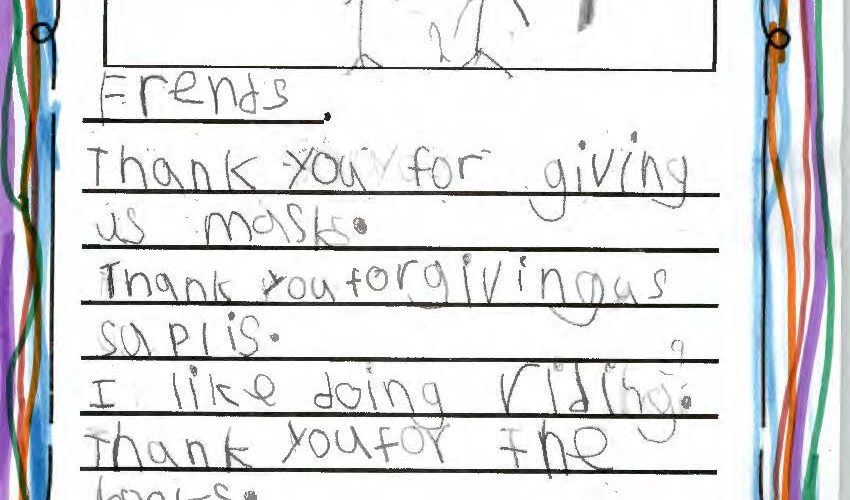 Frends.
Thank you for giving
us masks.
Thank you forgivingus
suplis.
I like doing riding.
Thank youfor the